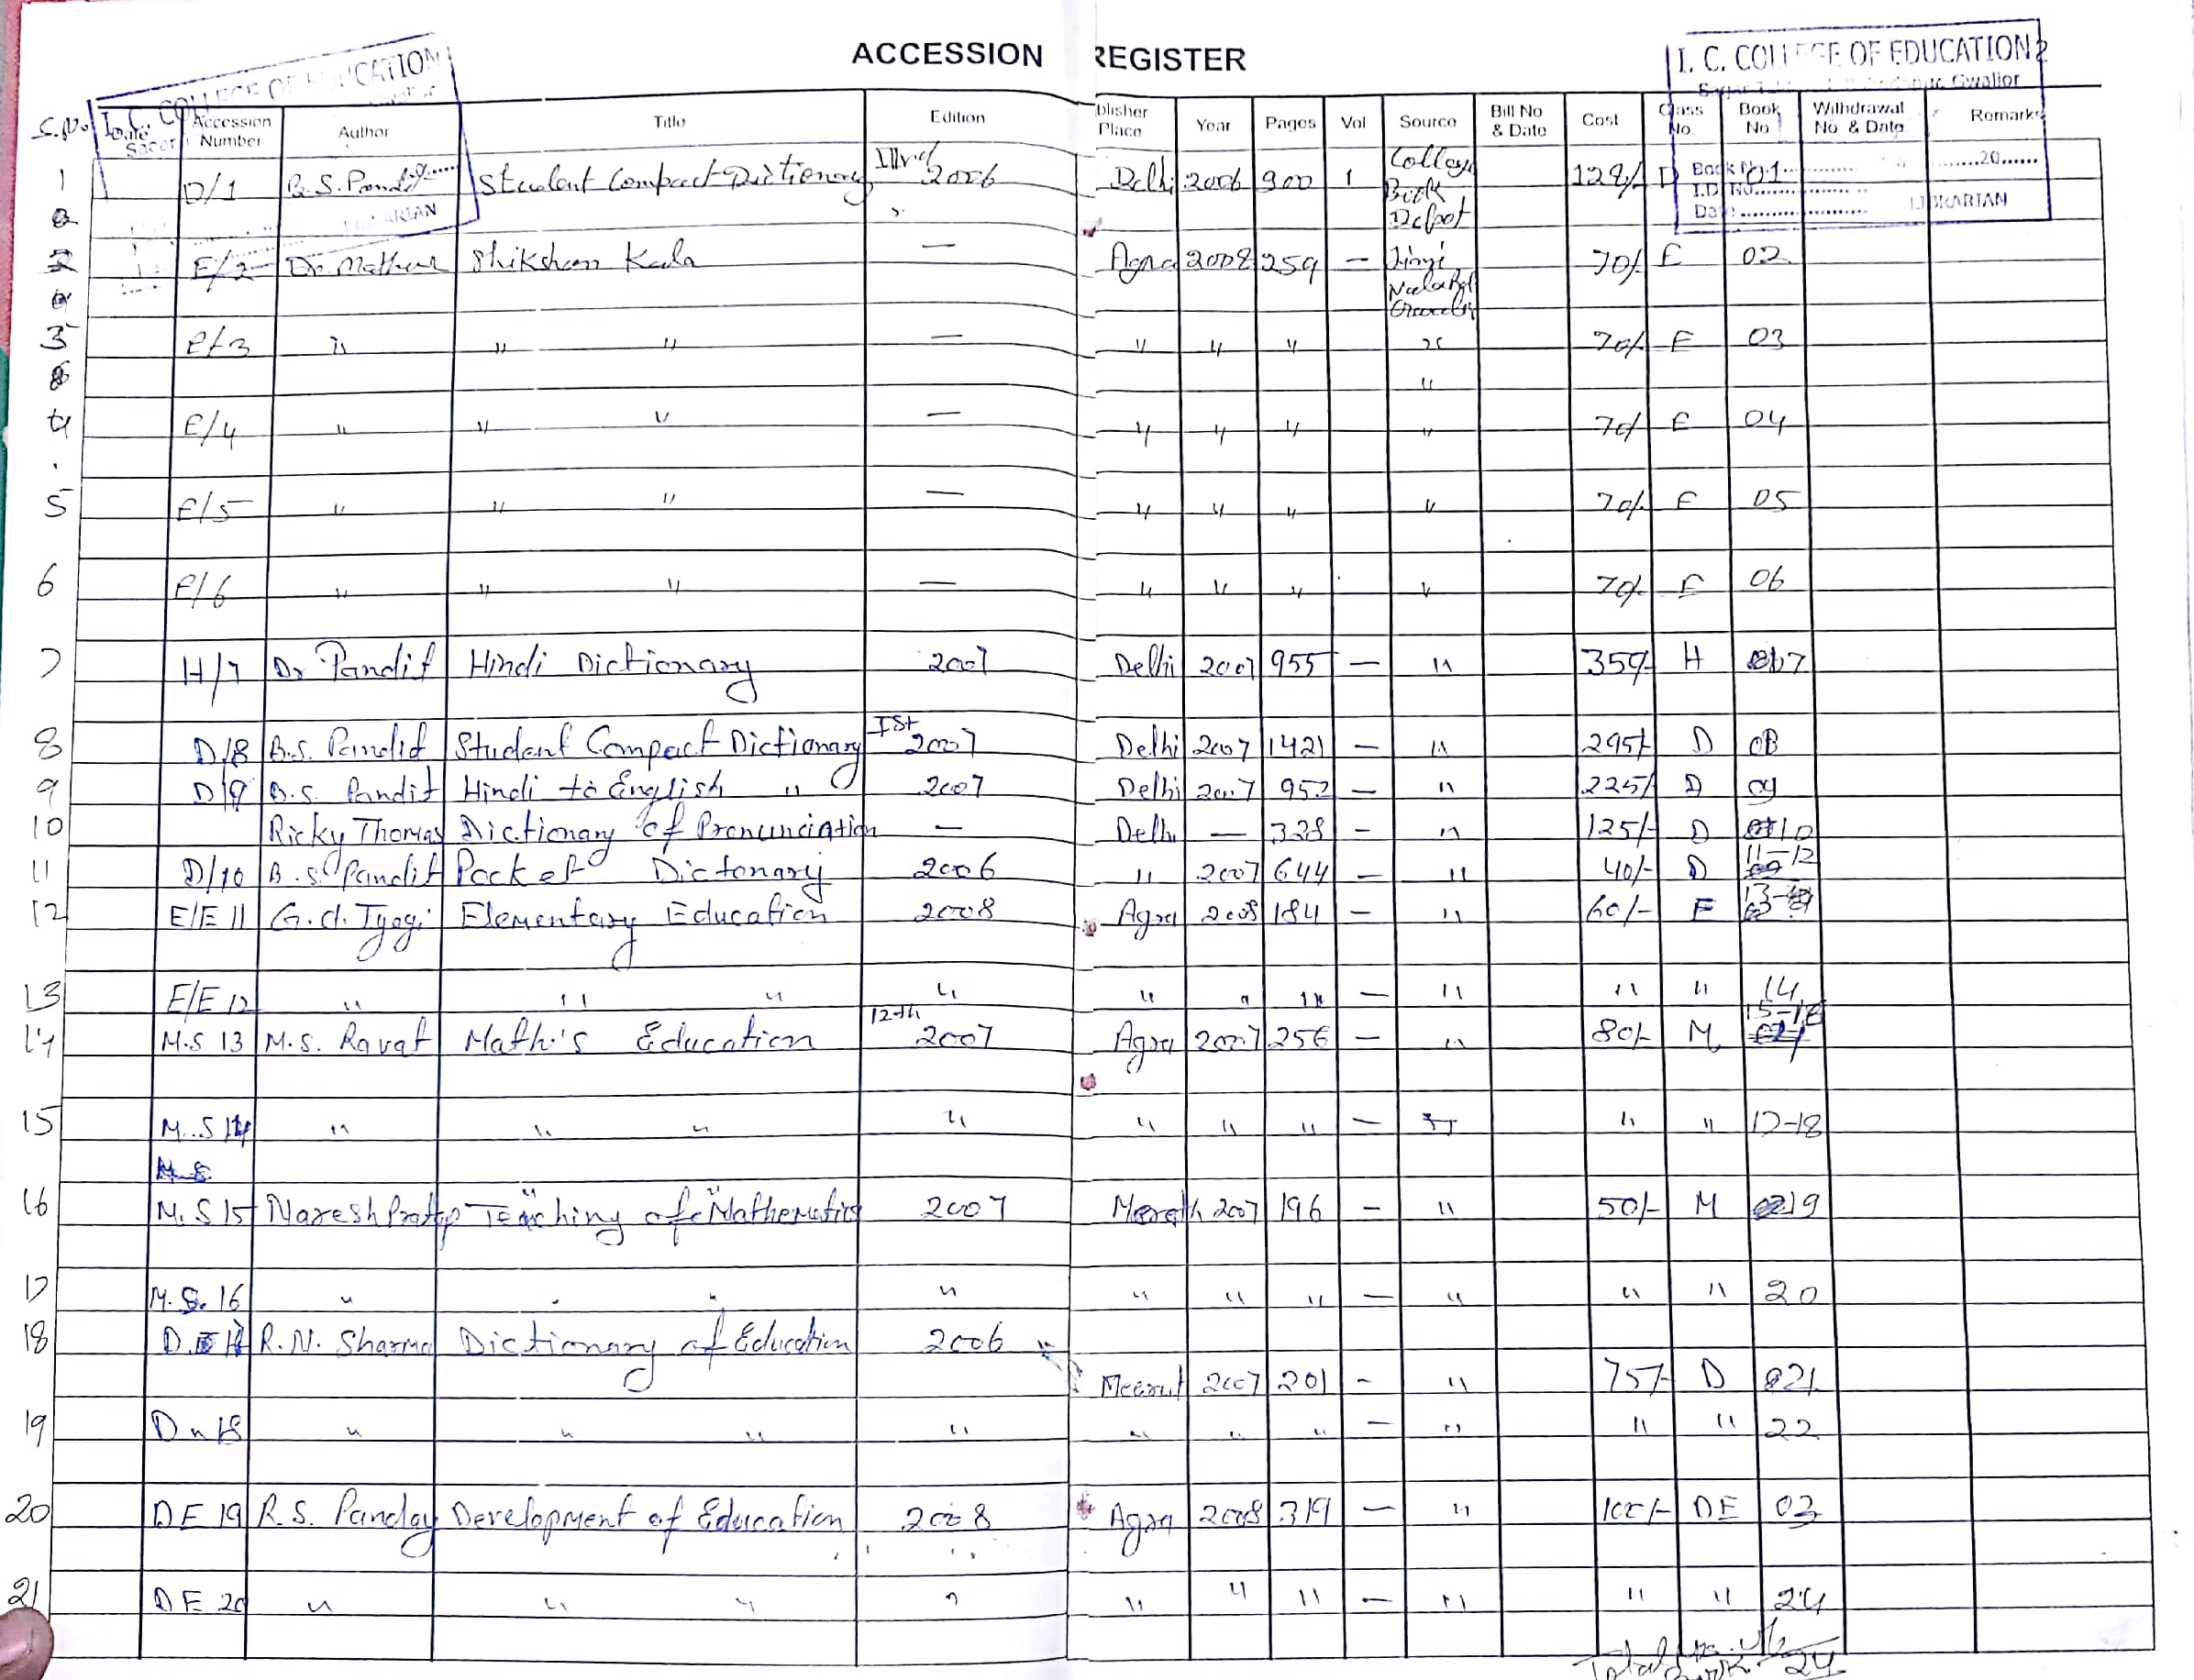 ACCESSION REGISTER
I. C. COLLEGE OF EDUCATION
I. C. COLLEGE OF EDUCATION 2
Gwalior
S.No. Date Accession Number Author Title Edition Publisher Place Year Pages Vol Source Bill No & Date Cost Class No. Book No Withdrawal No & Date Remarks
1 D/1 B.S. Pandit Student Compact Dictionary IIIrd 2006 Delhi 2006 900 1 College Book Depot 128/- D 01
Book No. ........ 20......
I.D No...............
Date .................. LIBRARIAN
LIBRARIAN
2 E/2 Dr Mathur Shikshan Kala — Agra 2008 259 — Jinsi 70/- E 02
3 E/3 " " " — " " " " 70/- E 03
"
4 E/4 " " " — " " " " 70/- E 04
5 E/5 " " " — " " " " 70/- E 05
6 E/6 " " " — " " " " 70/- E 06
7 H/7 Dr Pandit Hindi Dictionary 2007 Delhi 2007 955 — " 359/- H 07
8 D/8 B.S. Pandit Student Compact Dictionary Ist 2007 Delhi 2007 1421 — " 295/- D 08
9 D/9 B.S. Pandit Hindi to English " 2007 Delhi 2007 952 — " 225/- D 09
10 Ricky Thomas Dictionary of Pronunciation — Delhi — 328 — " 125/- D 10
11 D/10 B.S. Pandit Pocket Dictonary 2006 " 2007 644 — " 40/- D 11-12
12 E/E 11 G.d. Tyagi Elementary Education 2008 Agra 2008 184 — " 60/- E 13
13 E/E 12 " " " " " " " — " " " 14
14 M.S 13 M.S. Ravat Math's Education 12th 2007 Agra 2007 256 — " 80/- M 15-16
15 M.S 14 " " " " " " " — " " " 17-18
M.S
16 M.S 15 Naresh Pratap Teaching of Mathematics 2007 Meerath 2007 196 — " 50/- M 19
17 M.S. 16 " " " " " " " — " " " 20
18 R.N. Sharma Dictionary of Education 2006 Meerut 2007 201 - " 75/- D 21
19 D " 18 " " " " " " " — " " " 22
20 DE 19 R.S. Panday Development of Education 2008 Agra 2008 319 — " 100/- DE 03
21 DE 20 " " " " " " " — " " " 24
Total 24